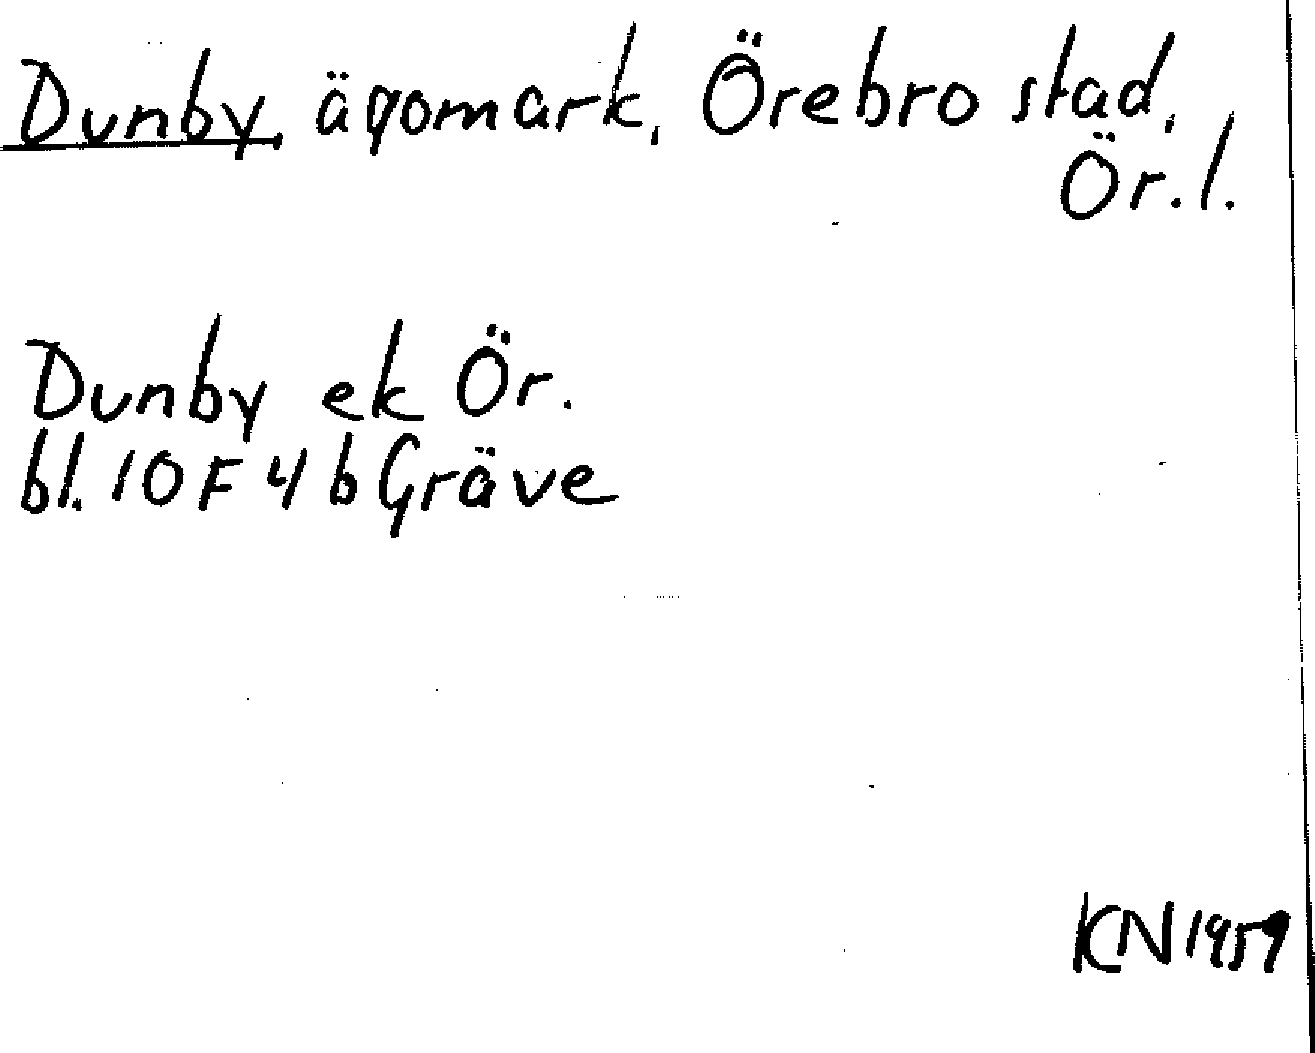 Dunby, ägomark, Örebro stad,
Ör. l.
Dunby ek Ör.
bl. 10 F 4 b Gräve
KN 1959